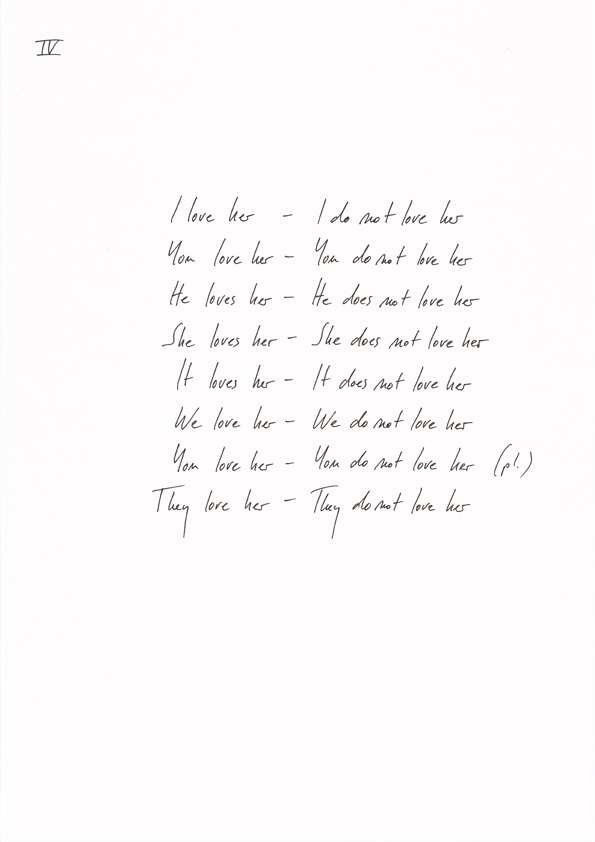 IV
I love her – I do not love her
You love her – You do not love her
He loves her – He does not love her
She loves her – She does not love her
It loves her – It does not love her
We love her – We do not love her
You love her – You do not love her (pl.)
They love her – They do not love her